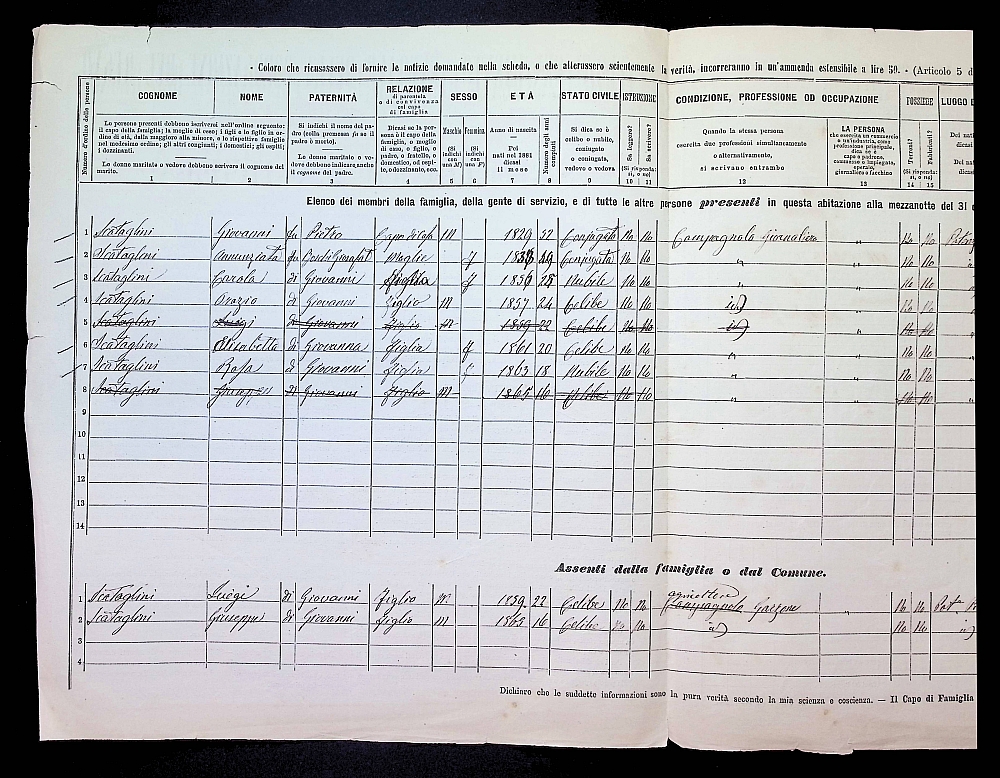 - Coloro che ricusassero di fornire le notizie domandate nella scheda, o che alterassero scientemente la verità, incorreranno in un'ammenda estensibile a lire 50. - (Articolo 5 d
Numero d'ordine delle persone
COGNOME
Le persone presenti debbono iscriversi nell'ordine seguente: il capo della famiglia; la moglie di esso; i figli e le figlie in ordine di età, dalla maggiore alla minore, e le rispettive famiglie nel medesimo ordine; gli altri congiunti; i domestici; gli ospiti; i dozzinanti.
Le donne maritate o vedove debbono scrivere il cognome del marito.
1
NOME
2
PATERNITÀ
Si indichi il nome del padre (colla premessa fu se il padre è morto).
Le donne maritate o vedove debbono indicare anche il cognome del padre.
3
RELAZIONE
di parentela
o di convivenza
col capo
di famiglia
Dicasi se la persona è il capo della famiglia, o moglie di esso, o figlio, o padre, o fratello, o domestico, od ospite, o dozzinante, ecc.
4
SESSO
Maschio
(Si indichi con una M)
5
Femmina
(Si indichi con una F)
6
ETÀ
Anno di nascita
Pei nati nel 1881 dicasi il mese
7
Numero degli anni compiuti
8
STATO CIVILE
Si dica se è celibe o nubile, coniugato o coniugata, vedovo o vedova
9
ISTRUZIONE
Sa leggere?
Sa scrivere?
(Si risponda: sì, o no)
10 11
CONDIZIONE, PROFESSIONE OD OCCUPAZIONE
Quando la stessa persona
esercita due professioni simultaneamente
o alternativamente,
si scrivano entrambe
12
LA PERSONA
che esercita un commercio o un'industria, come professione principale, dica se è capo o padrone, commesso o impiegato, operaio, giornaliero o facchino
13
POSSIEDE
Terreni?
Fabbricati?
(Si risponda: sì, o no)
14 15
LUOGO D
Dei nati
dicasi
Dei nati
dicasi
Elenco dei membri della famiglia, della gente di servizio, e di tutte le altre persone presenti in questa abitazione alla mezzanotte del 31 d
1 Scataglini Giovanni fu Pietro Capo di casa M 1829 52 Conjugato No No Campagnolo Giornaliero " No No
2 Scataglini Annunziata fu Moglie f 29 Conjugata No No " " No No
3 Scataglini Carola di Giovanni figlia f 1856 25 Nubile No No " " No No
4 Scataglini Orazio di Giovanni figlio M 1857 24 Celibe No No id) " No No
5 Scataglini Luigi di Giovanni figlio M 1859 22 Celibe No No id) " No No
6 Scataglini Elisabetta di Giovanni figlia f 1861 20 Celibe No No " " No No
7 Scataglini Rosa di Giovanni figlia f 1863 18 Nubile No No " " No No
8 Scataglini Giuseppe di Giovanni figlio M 1865 16 Celibe No No " " No No
9
10
11
12
13
14
Assenti dalla famiglia o dal Comune.
1 Scataglini Luigi di Giovanni figlio M 1859 22 Celibe No No Campagnolo Garzone " No No
2 Scataglini Giuseppe di Giovanni figlio M 1865 16 Celibe No No id) No No id)
3
4
Dichiaro che le suddette informazioni sono la pura verità secondo la mia scienza e coscienza. — Il Capo di Famiglia